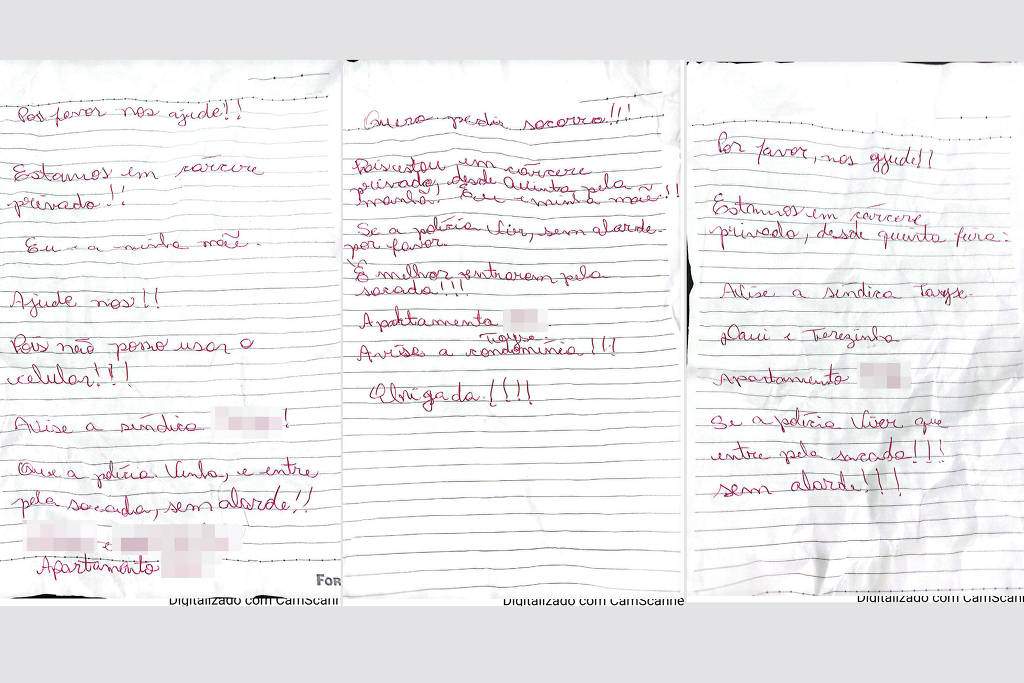 Por favor nos ajude!!
Estamos em cárcere
privado!!
Eu e a minha mãe.
Ajude nos!!
Pois não posso usar o
celular!!!
Avise a síndica !
Que a polícia Venha, e entre
pela sacada, sem alarde!!
e
Apartamento
FOR
Digitalizado com CamScann
Quero pedir socorro!!!
Pois estou em cárcere
privado, desde Quinta pela
manhã. Eu e minha mãe!!
Se a polícia Vir, sem alarde.
por favor.
É melhor entrarem pela
sacada!!!
Apartamento
Avise a condomínia!!!
Obrigada!!!!
Digitalizado com CamScanne
Por favor, nos ajude!!
Estamos em cárcere
privado, desde quinta feira.
Avise a síndica Tayse.
Davi e Terezinha
Apartamento
Se a polícia Vier que
entre pela sacada!!!
sem alarde!!!
Digitalizado com CamScann